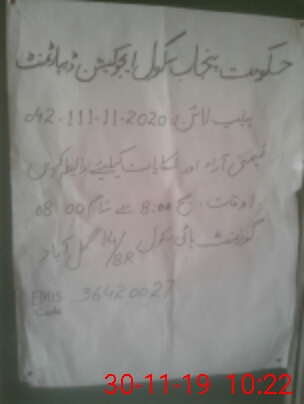 حکومت پنجاب سکول ایجوکیشن ڈیپارٹمنٹ
ہیلپ لائن: 042-111-11-2020
قیمتی آراء اور شکایات کیلئے رابطہ کریں
اوقات: صبح 8:00 سے شام 08:00
گورنمنٹ ہائی سکول 14/8R گل آباد
EMIS Code 36420027
30-11-19 10:22